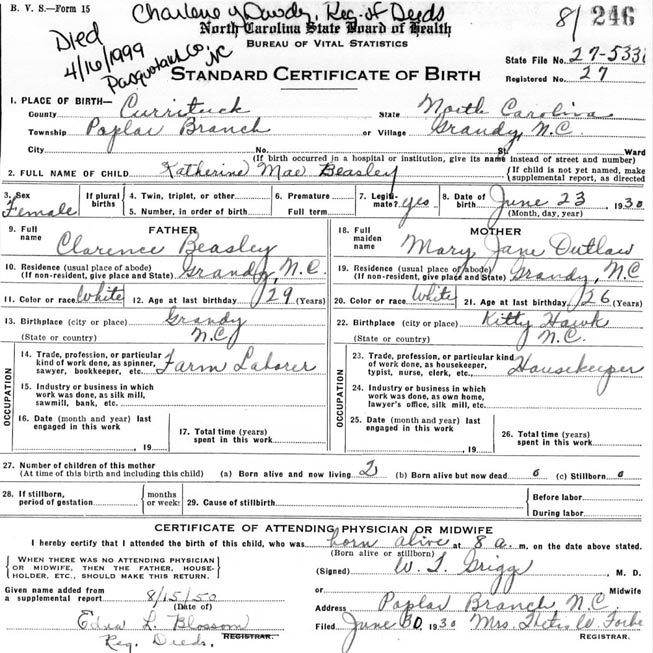 B. V. S.—Form 15
Charlene Y Dowdy, Reg. of Deeds
8/ 246
North Carolina State Board of Health
Bureau of Vital Statistics
Died
4/10/1999
Pasquotank Co.
NC
State File No. 27-533
Registered No. 27
STANDARD CERTIFICATE OF BIRTH
1. PLACE OF BIRTH—
County Currituck State North Carolina
Township Poplar Branch or Village Grandy, N.C.
City No. St. Ward
(If birth occurred in a hospital or institution, give its name instead of street and number)
2. FULL NAME OF CHILD Katherine Mae Beasley {If child is not yet named, make supplemental report, as directed
3. Sex Female If plural births 4. Twin, triplet, or other 5. Number, in order of birth 6. Premature Full term 7. Legitimate? yes 8. Date of birth June 23, 1930 (Month, day, year)
FATHER
9. Full name Clarence Beasley
MOTHER
18. Full maiden name Mary Jane Outlaw
10. Residence (usual place of abode) (If non-resident, give place and State) Grandy, N.C.
19. Residence (usual place of abode) (If non-resident, give place and State) Grandy, N.C
11. Color or race White 12. Age at last birthday 29 (Years)
20. Color or race White 21. Age at last birthday 26 (Years)
13. Birthplace (city or place) Grandy
(State or country) N.C
22. Birthplace (city or place) Kitty Hawk
(State or country) N.C.
OCCUPATION
14. Trade, profession, or particular kind of work done, as spinner, sawyer, bookkeeper, etc. Farm Laborer
15. Industry or business in which work was done, as silk mill, sawmill, bank, etc.
16. Date (month and year) last engaged in this work , 19
17. Total time (years) spent in this work
OCCUPATION
23. Trade, profession, or particular kind of work done, as housekeeper, typist, nurse, clerk, etc. Housekeeper
24. Industry or business in which work was done, as own home, lawyer's office, silk mill, etc.
25. Date (month and year) last engaged in this work , 19
26. Total time (years) spent in this work
27. Number of children of this mother
(At time of this birth and including this child) (a) Born alive and now living 2 (b) Born alive but now dead 0 (c) Stillborn 0
28. If stillborn, period of gestation months or weeks 29. Cause of stillbirth Before labor During labor
CERTIFICATE OF ATTENDING PHYSICIAN OR MIDWIFE
I hereby certify that I attended the birth of this child, who was born alive at 8 a. m. on the date above stated.
(Born alive or stillborn)
{WHEN THERE WAS NO ATTENDING PHYSICIAN OR MIDWIFE, THEN THE FATHER, HOUSEHOLDER, ETC., SHOULD MAKE THIS RETURN.}
(Signed) W. T. Grigg, M. D.
or Midwife
Given name added from a supplemental report 8/15/50
(Date of)
Address Poplar Branch N.C.
Edna L. Blossom
REGISTRAR.
Reg. Deeds.
Filed June 30, 1930 Mrs. Thetis W. Forbe
REGISTRAR.